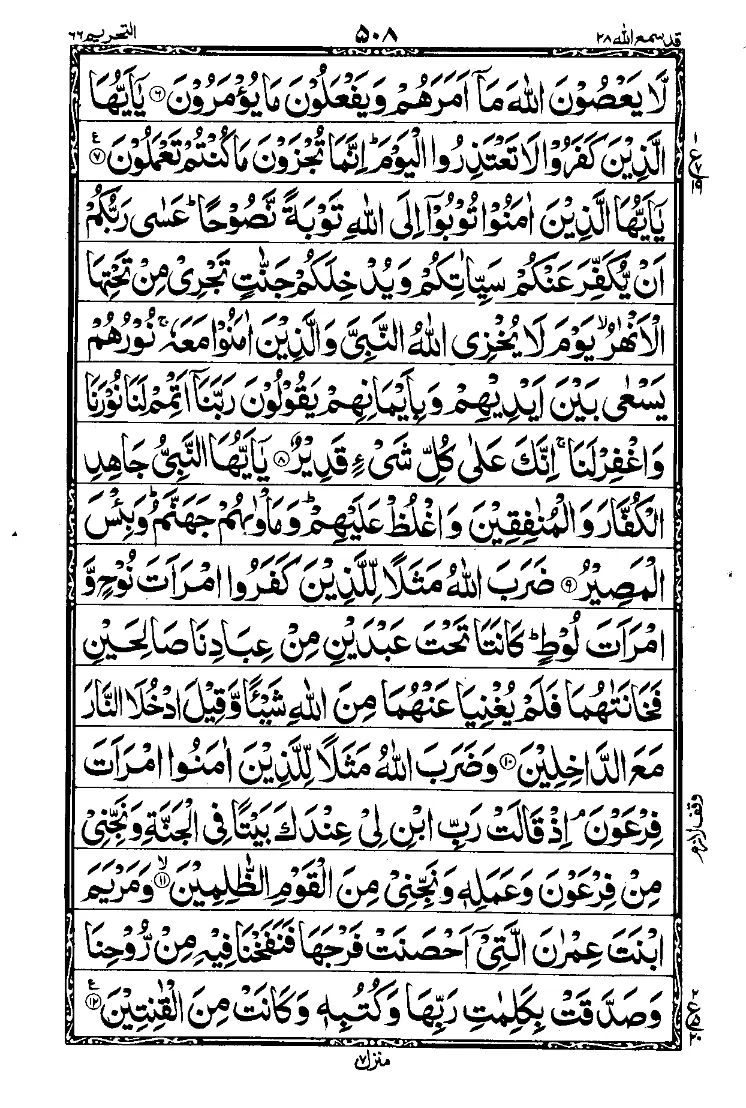 قد سمع الله ٢٨
٥٠٨
التحريم ٦٦
لَّا يَعْصُوْنَ اللهَ مَآ اَمَرَهُمْ وَيَفْعَلُوْنَ مَا يُؤْمَرُوْنَ ۝٦ يٰٓاَيُّهَا
الَّذِيْنَ كَفَرُوْا لَا تَعْتَذِرُوا الْيَوْمَ ؕ اِنَّمَا تُجْزَوْنَ مَا كُنْتُمْ تَعْمَلُوْنَ ۝٧ ع
يٰٓاَيُّهَا الَّذِيْنَ اٰمَنُوْا تُوْبُوْٓا اِلَى اللهِ تَوْبَةً نَّصُوْحًا ؕ عَسٰى رَبُّكُمْ
اَنْ يُّكَفِّرَ عَنْكُمْ سَيِّاٰتِكُمْ وَيُدْخِلَكُمْ جَنّٰتٍ تَجْرِىْ مِنْ تَحْتِهَا
الْاَنْهٰرُ ۙ يَوْمَ لَا يُخْزِى اللهُ النَّبِىَّ وَالَّذِيْنَ اٰمَنُوْا مَعَهٗ ۚ نُوْرُهُمْ
يَسْعٰى بَيْنَ اَيْدِيْهِمْ وَبِاَيْمَانِهِمْ يَقُوْلُوْنَ رَبَّنَآ اَتْمِمْ لَنَا نُوْرَنَا
وَاغْفِرْ لَنَا ۚ اِنَّكَ عَلٰى كُلِّ شَىْءٍ قَدِيْرٌ ۝٨ يٰٓاَيُّهَا النَّبِىُّ جَاهِدِ
الْكُفَّارَ وَالْمُنٰفِقِيْنَ وَاغْلُظْ عَلَيْهِمْ ؕ وَمَاْوٰىهُمْ جَهَنَّمُ ؕ وَبِئْسَ
الْمَصِيْرُ ۝٩ ضَرَبَ اللهُ مَثَلًا لِّلَّذِيْنَ كَفَرُوا امْرَاَتَ نُوْحٍ وَّ
امْرَاَتَ لُوْطٍ ؕ كَانَتَا تَحْتَ عَبْدَيْنِ مِنْ عِبَادِنَا صَالِحَيْنِ
فَخَانَتٰهُمَا فَلَمْ يُغْنِيَا عَنْهُمَا مِنَ اللهِ شَيْـًٔا وَّقِيْلَ ادْخُلَا النَّارَ
مَعَ الدَّاخِلِيْنَ ۝١٠ وَضَرَبَ اللهُ مَثَلًا لِّلَّذِيْنَ اٰمَنُوا امْرَاَتَ
فِرْعَوْنَ ۘ اِذْ قَالَتْ رَبِّ ابْنِ لِىْ عِنْدَكَ بَيْتًا فِى الْجَنَّةِ وَنَجِّنِىْ
مِنْ فِرْعَوْنَ وَعَمَلِهٖ وَنَجِّنِىْ مِنَ الْقَوْمِ الظّٰلِمِيْنَ ۝١١ ۙ وَمَرْيَمَ
ابْنَتَ عِمْرٰنَ الَّتِىْٓ اَحْصَنَتْ فَرْجَهَا فَنَفَخْنَا فِيْهِ مِنْ رُّوْحِنَا
وَصَدَّقَتْ بِكَلِمٰتِ رَبِّهَا وَكُتُبِهٖ وَكَانَتْ مِنَ الْقٰنِتِيْنَ ۝١٢ ع
وقف لازم
منزل ٧